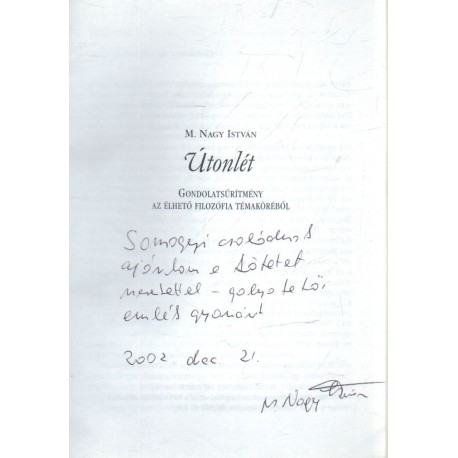 M. NAGY ISTVÁN
Útonlét
GONDOLATSŰRÍTMÉNY
AZ ÉLHETŐ FILOZÓFIA TÉMAKÖRÉBŐL
Somogyi családnak
ajánlom e kötetet
szeretettel –
emlék gyanánt
2002. dec. 21.
M Nagy István